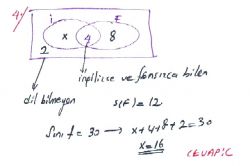 4)
İ F
x 4 8
2
dil bilmeyen
ingilizce ve fransızca bilen
s(F) = 12
Sınıf = 30 → x+4+8+2=30
x=16
CEVAP: C